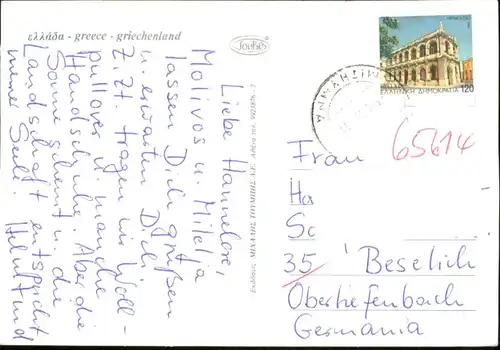 ελλάδα - greece - griechenland
Liebe Hannelore,
Molivos u. Milela
lassen Dich grüßen
u. erwarten Dich.
Z. Zt. tragen wir Woll-
pullover u. manche
Handschuhe. Aber die
Sonne scheint u. die
Landschaft entspricht
meine Seele!
Εκδόσεις: ΜΙΧΑΗΛ ΤΟΥΜΠΗΣ Α.Ε. Αθήνα
ΕΛΛΗΝΙΚΗ ΔΗΜΟΚΡΑΤΙΑ 120
Frau
65614
Ha
Sc
35 Beselich
Obertiefenbach
Germania